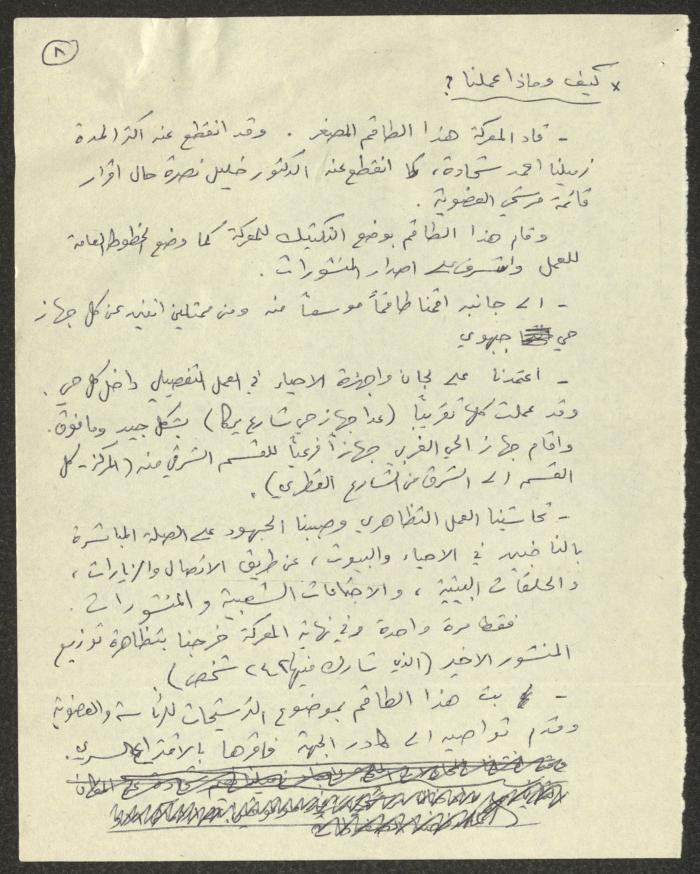 ٨
× كيف وماذا عملنا ؟
- قاد المعركة هذا الطاقم المصغر . وقد انقطع عنه اكثر المدة
زميلنا احمد شحادة، كما انقطع عنه الدكتور خليل نصرة حال اقرار
قائمة مرشحي العضوية .
وقام هذا الطاقم بوضع التكتيك للمعركة كما وضع الخطوط العامة
للعمل واشرف على اصدار المنشورات .
- الى جانبه اقمنا طاقماً موسعاً منه ومن ممثلين اثنين عن كل جهاز
حي جبهوي
- اعتمدنا على لجان واجهزة الاحياء في العمل التفصيلي داخل كل حي .
وقد عملت كلها تقريباً (عدا جهاز حي شارع يركا) بشكل جيد وما فوق.
واقام جهاز الحي الغربي جهازاً فرعياً للقسم الشرقي منه (المركز - كل
القسم الى الشرق من الشارع القطري) .
- تحاشينا العمل التظاهري وصببنا الجهود على الصلة المباشرة
بالناخبين في الاحياء والبيوت، عن طريق الاتصال والزيارات،
والحلقات البيتية ، والاجتماعات الشعبية والمنشورات .
فقط مرة واحدة وفي نهاية المعركة خرجنا بتظاهرة توزيع
المنشور الاخير (الذي شارك فيها ٢٤٢ شخص)
- بت هذا الطاقم بموضوع الترشيحات للرئاسة والعضوية
وقدم تواصيه الى كادر الجبهة فاقرها بالاقتراع السري.